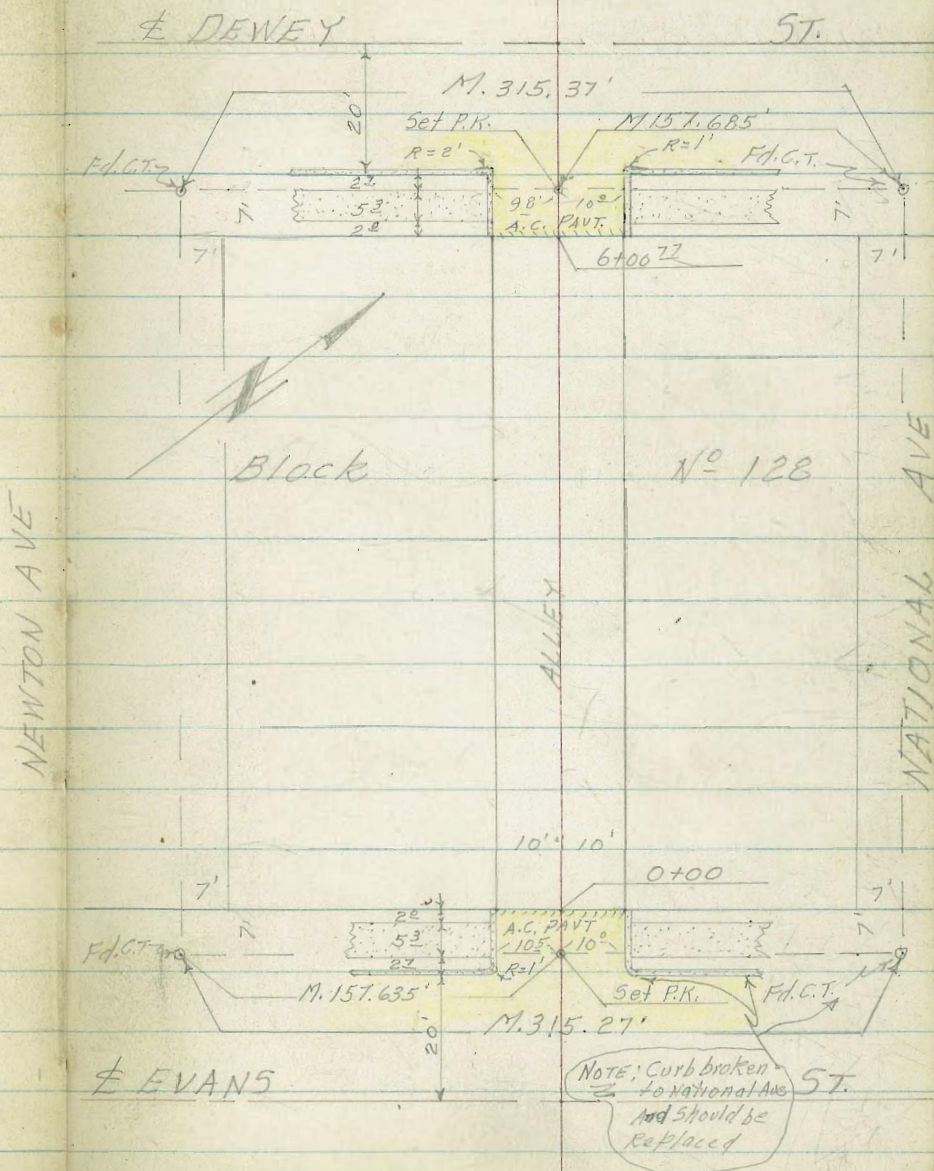 ℄ DEWEY ST.
M. 315.37'
20'
Set P.K.
M 157.685'
R=2'
R=1'
Fd. C.T.
Fd. C.T.
2 1
5 3
2 0
7'
7'
98'
10 0
A.C. PAVT.
7'
7'
6+00 77
Block
Nº 128
NEWTON AVE
ALLEY
NATIONAL AVE
10' 10'
0+00
7'
7'
7'
7'
2 0
5 3
2 1
A.C. PAVT
105
10 0
R=1'
Fd. C.T.
M. 157.635'
Set P.K.
Fd. C.T.
20'
M. 315.27'
℄ EVANS ST.
NOTE; Curb broken
to National Ave
And Should be
Replaced